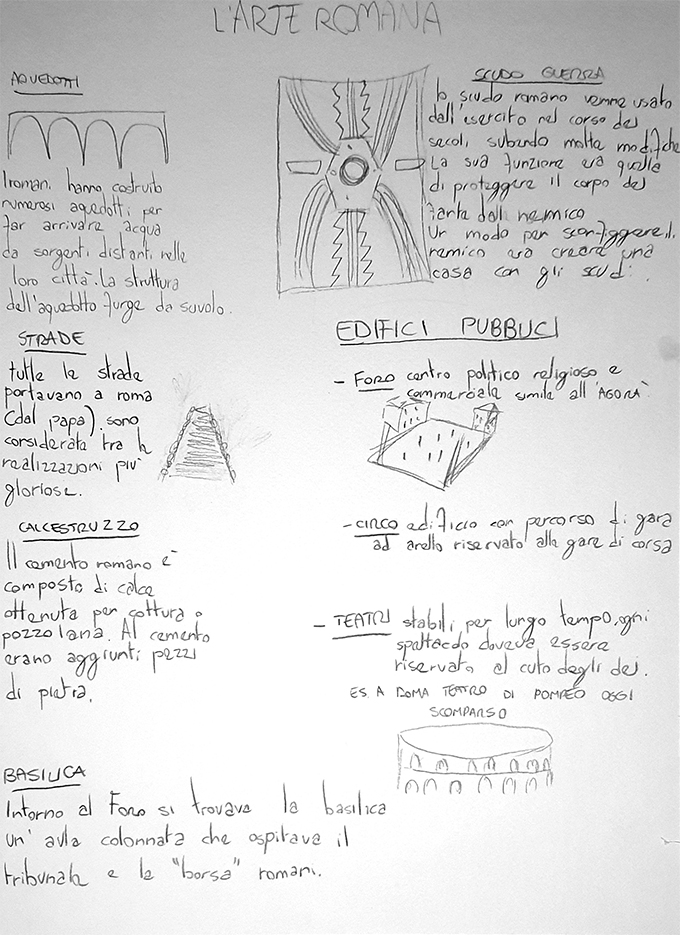 L'ARTE ROMANA
AQUEDOTTI
I romani hanno costruito
numerosi aquedotti per
far arrivare acqua
da sorgenti distanti nelle
loro città. La struttura
dell'aquedotto funge da suvolo.
SCUDO GUERRA
lo scudo romano venne usato
dall'esercito nel corso dei
secoli, subendo molte modifiche
La sua funzione era quella
di proteggere il corpo del
fante dal nemico
Un modo per sconfiggere il
nemico era creare una
casa con gli scudi.
STRADE
tutte le strade
portavano a roma
(dal papa). sono
considerate tra le
realizzazioni più
gloriose.
EDIFICI PUBBLICI
- FORO centro politico religioso e
commerciale simile all'"AGORÀ"
CALCESTRUZZO
Il cemento romano è
composto di calce
ottenuta per cottura e
pozzolana. Al cemento
erano aggiunti pezzi
di pietra.
- CIRCO edificio con percorso di gara
ad anello riservato alle gare di corsa
- TEATRI stabili per lungo tempo, ogni
spettacolo doveva essere
riservato al culto degli dei.
ES. A ROMA TEATRO DI POMPEO OGGI
SCOMPARSO
BASILICA
Intorno al Foro si trovava la basilica
un' aula colonnata che ospitava il
tribunale e la "borsa" romani.